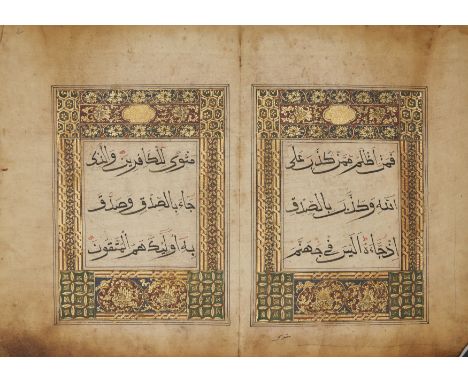 فمن اظلم ممن كذب على
الله وكذب بالصدق
اذ جاءه اليس في جهنم
مثوى للكافرين والذى
جاء بالصدق وصدق
به اوليك هم المتقون